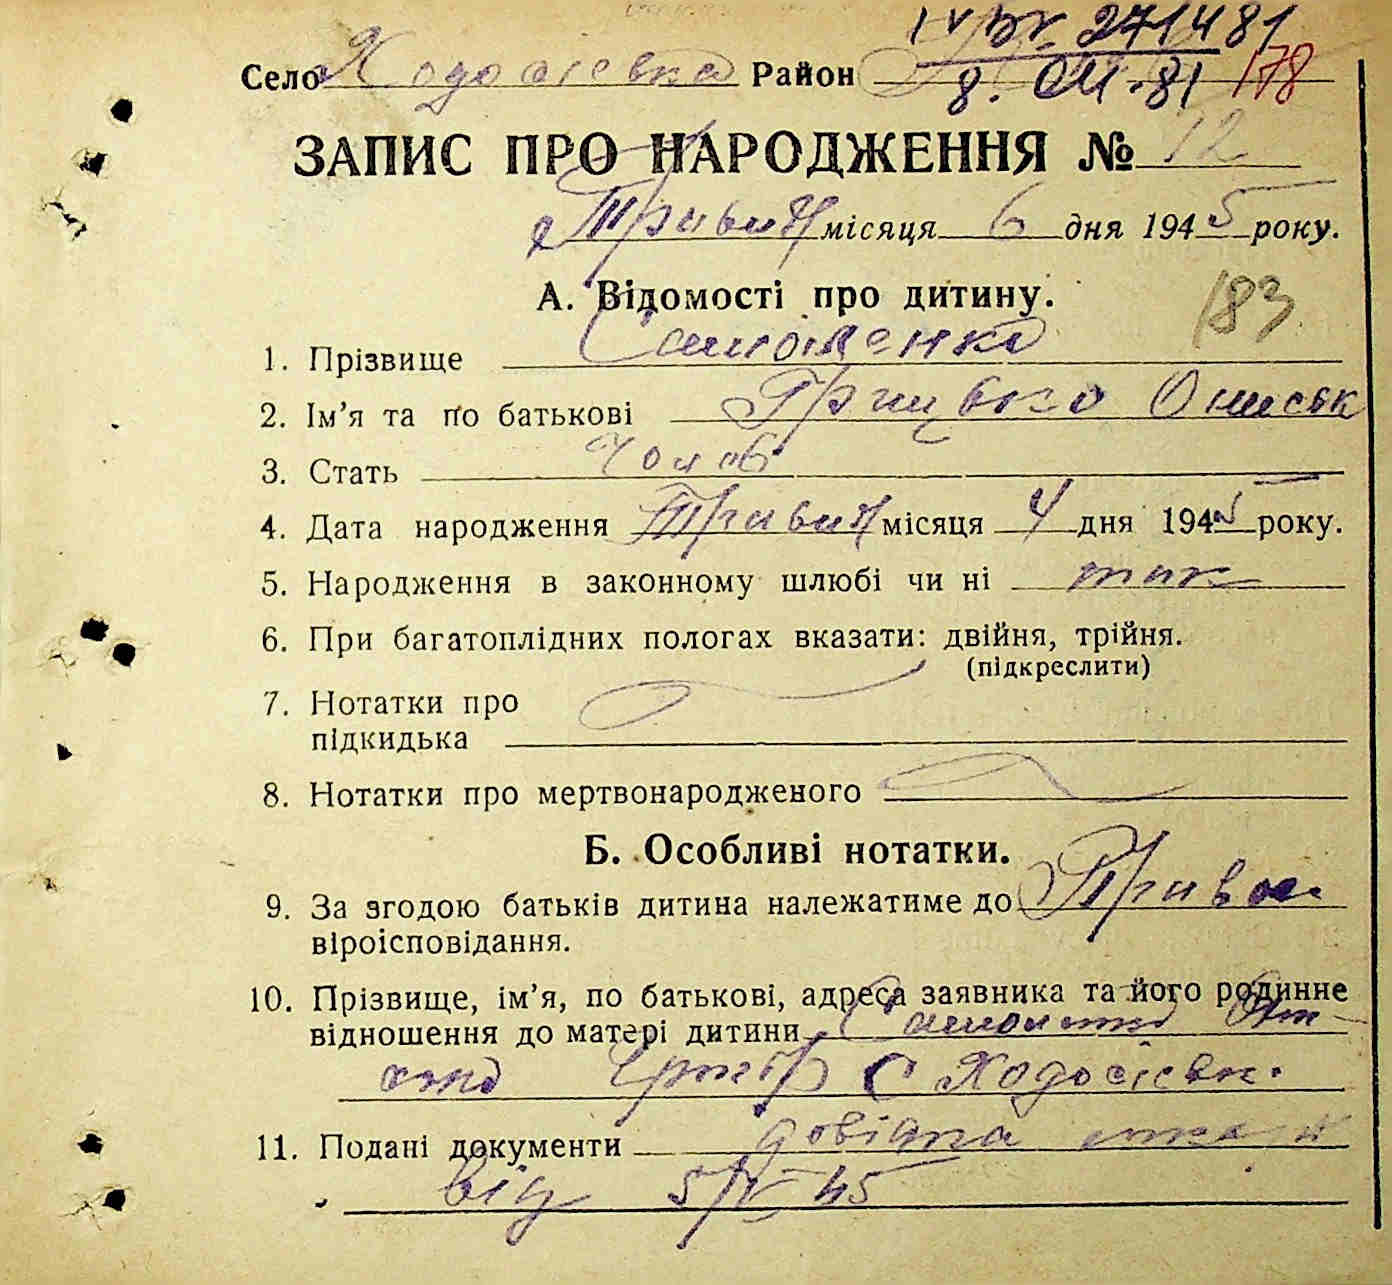 IV БК 271481
Село Ходосієвка Район
8. 04. 81 178
ЗАПИС ПРО НАРОДЖЕННЯ № 12
Травня місяця 6 дня 1945 року.
А. Відомості про дитину.
183
1. Прізвище
2. Ім'я та по батькові Грицько Ониськ
3. Стать Чолов
4. Дата народження Травня місяця 4 дня 1945 року.
5. Народження в законному шлюбі чи ні так
6. При багатоплідних пологах вказати: двійня, трійня.
(підкреслити)
7. Нотатки про
підкидька
8. Нотатки про мертвонародженого
Б. Особливі нотатки.
9. За згодою батьків дитина належатиме до Правос
віроісповідання.
10. Прізвище, ім'я, по батькові, адреса заявника та його родинне
відношення до матері дитини
с Ходосієвк.
11. Подані документи довідка
від 5/IV 45